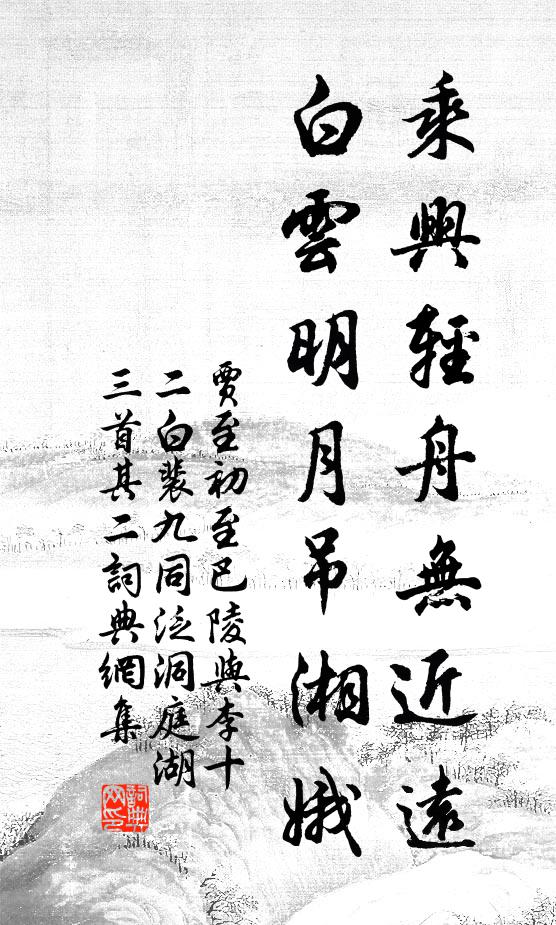 乘興輕舟無近遠
白雲明月吊湘娥
賈至初至巴陵與李十
二白裴九同泛洞庭湖
三首其二詞典網集